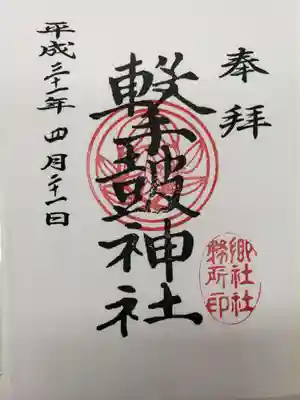 奉拝
擊皷神社
平成三十一年四月二十一日
郷社社
務所印